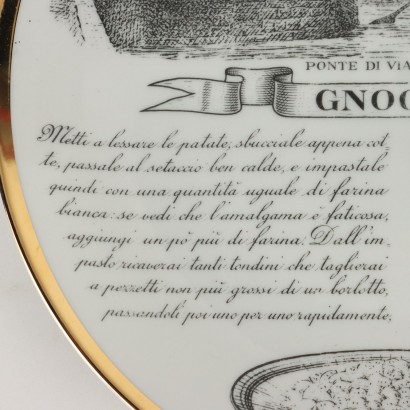 PONTE DI VIA
GNOC
Metti a lessare le patate, sbucciale appena cot-
te, passale al setaccio ben calde, e impastale
quindi con una quantità uguale di farina
bianca: se vedi che l'amalgama è faticosa,
aggiungi un pò più di farina. Dall'im-
pasto ricaverai tanti tondini che taglierai
a pezzetti non più grossi di un borlotto,
passandoli poi uno per uno rapidamente,